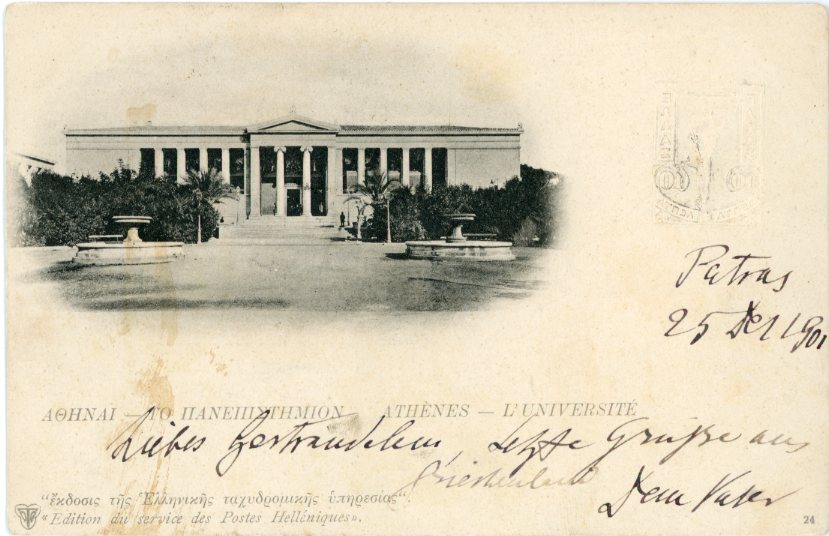 Patras
25 Dez 1901
ΑΘΗΝΑΙ — ΤΟ ΠΑΝΕΠΙΣΤΗΜΙΟΝ ATHÈNES — L'UNIVERSITÉ
Liebes Gertraudchen, Letzte Grüße aus
Griechenland
Dein Vater
"ἔκδοσις τῆς Ἑλληνικῆς ταχυδρομικῆς ὑπηρεσίας".
« Edition du service des Postes Helléniques ».
24